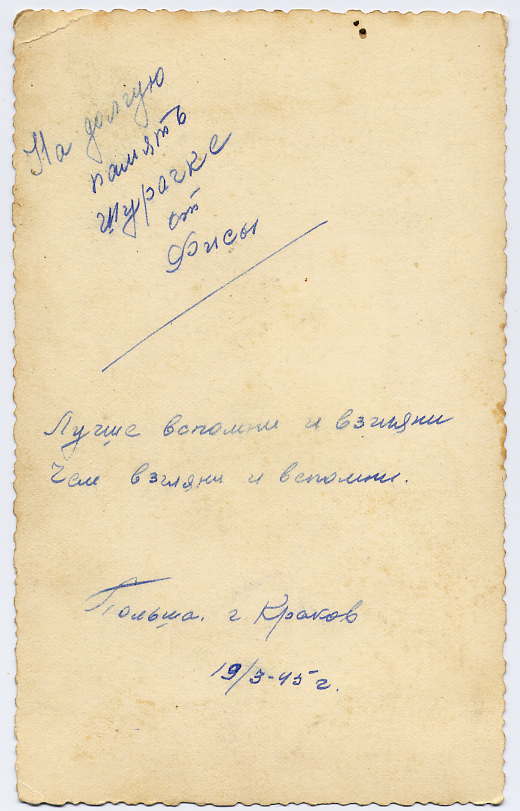 На долгую
память
Шурачке
от
Фисы
Лучше вспомни и взгляни
Чем взгляни и вспомни.
Польша. г Краков
19/3-45 г.